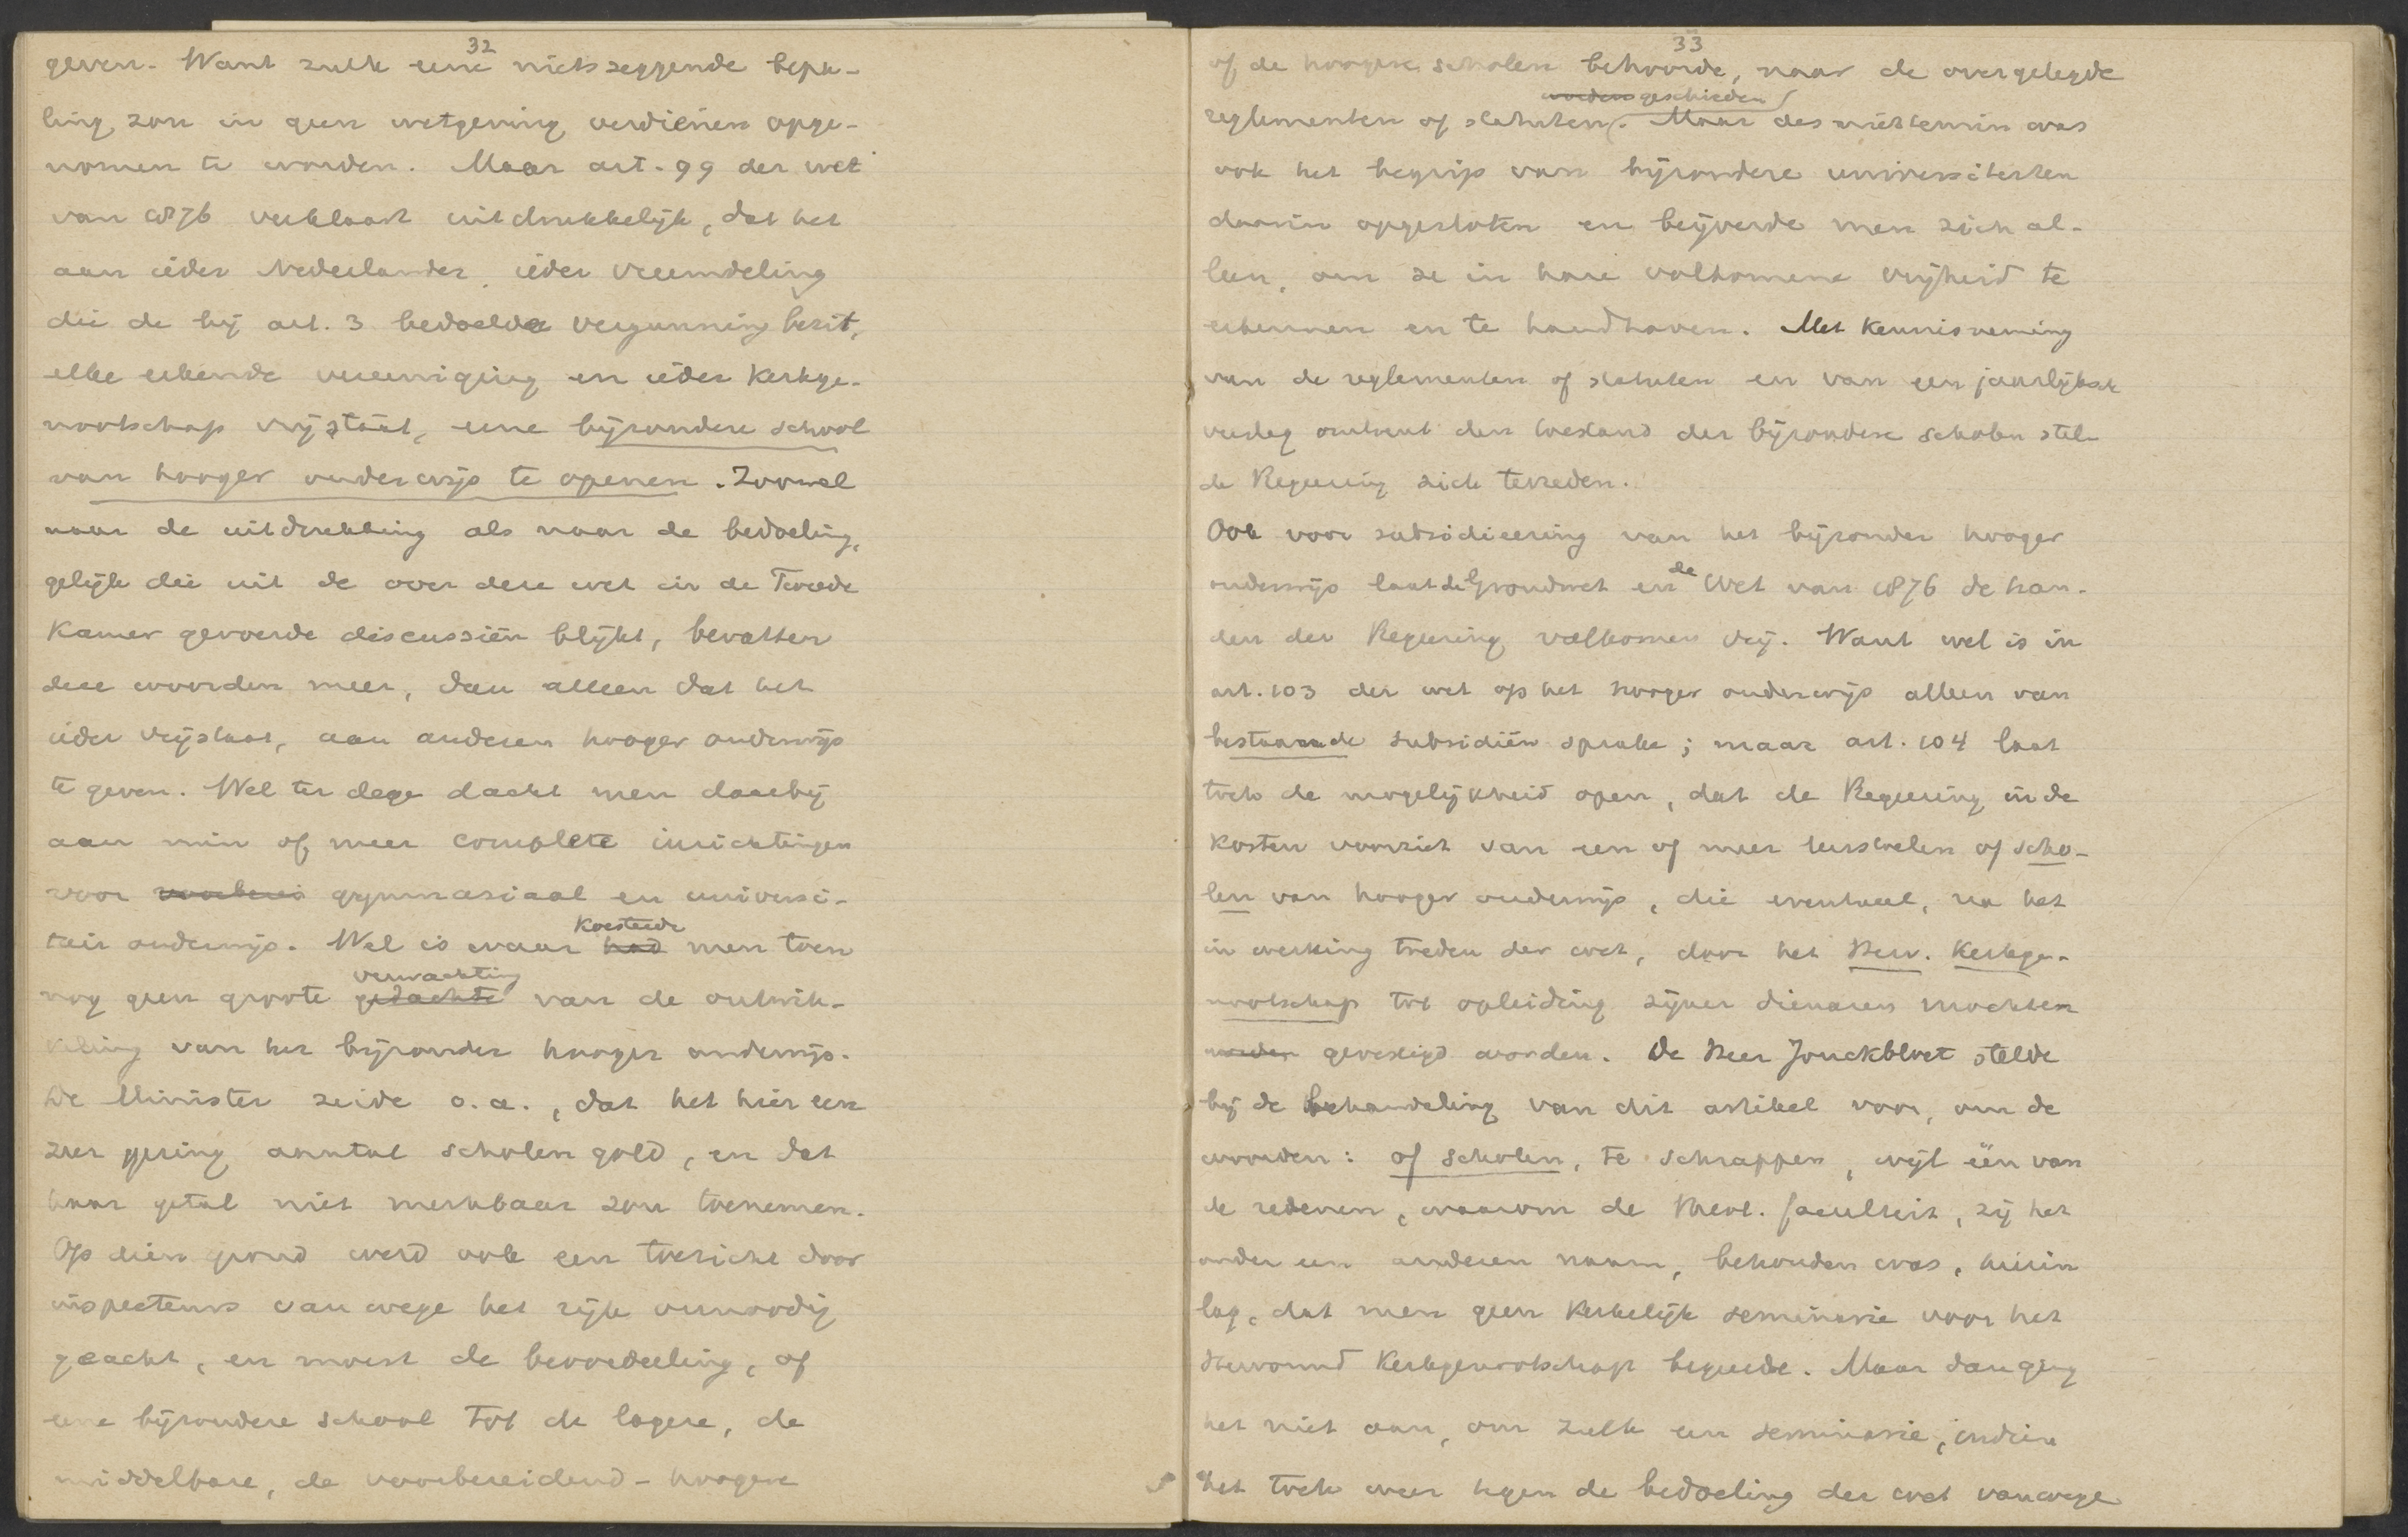 32
geven. Want zulk eene nietszeggende bepa-
ling zou in geen wetgeving verdienen opge-
nomen te worden. Maar art. 99 der wet
van 1876 verklaart uitdrukkelijk, dat het
aan ieder Nederlander, ieder vreemdeling
die de bij art. 3 bedoelde vergunning bezit,
elke erkende vereeniging en ieder Kerkge-
nootschap vrijstaat, eene bijzondere school
van hooger onderwijs te openen. Zoowel
naar de uitdrukking als naar de bedoeling,
gelijk die uit de over deze wet in de Tweede
Kamer gevoerde discussiën blijkt, bevatten
deze woorden meer, dan alleen dat het
ieder vrijstaat, aan anderen hooger onderwijs
te geven. Wel ter dege dacht men daarbij
aan min of meer complete inrichtingen
voor gymnasiaal en universi-
koesterde
tair onderwijs. Wel is waar had men toen
verwachting
nog geen groote gedachte van de ontwik-
keling van het bijzonder hooger onderwijs.
De Minister zeide o.a., dat het hier een
zeer gering aantal scholen gold, en dat
haar getal niet merkbaar zou toenemen.
Op dien grond werd ook een toezicht door
inspecteurs vanwege het rijk onnoodig
geacht, en moest de beoordeeling, of
eene bijzondere school tot de lagere, de
middelbare, de voorbereidend-hoogere
33
of de hoogere scholen behoorde, naar de overgelegde
worden geschieden
reglementen of statuten. Maar desniettemin was
ook het begrip van bijzondere universiteiten
daarin opgesloten en beijverde men zich al-
leen, om ze in hare volkomene vrijheid te
erkennen en te handhaven. Met kennisneming
van de reglementen of statuten en van een jaarlijksch
verslag omtrent den toestand der bijzondere scholen stelt
de Regeering zich tevreden.
Ook voor subsidieering van het bijzonder hooger
de
onderwijs laat de Grondwet en Wet van 1876 de han-
den der Regeering volkomen vrij. Want wel is in
art. 103 der wet op het hooger onderwijs alleen van
bestaande subsidiën sprake; maar art. 104 laat
toch de mogelijkheid open, dat de Regeering in de
kosten voorziet van een of meer leerstoelen of scho-
len van hooger onderwijs, die eventueel, na het
in werking treden der wet, door het Herv. Kerkge-
nootschap tot opleiding zijner dienaren mochten
worden gevestigd worden. De Heer Jonckbloet stelde
bij de behandeling van dit artikel voor, om de
woorden: of scholen, te schrappen, wijl één van
de redenen, waarom de theol. faculteit, zij het
onder een anderen naam, behouden was, hierin
lag, dat men geen Kerkelijk seminarie voor het
Hervormd Kerkgenootschap begeerde. Maar dan ging
het niet aan, om zulk een seminarie, indien
het toch weer tegen de bedoeling der wet vanwege